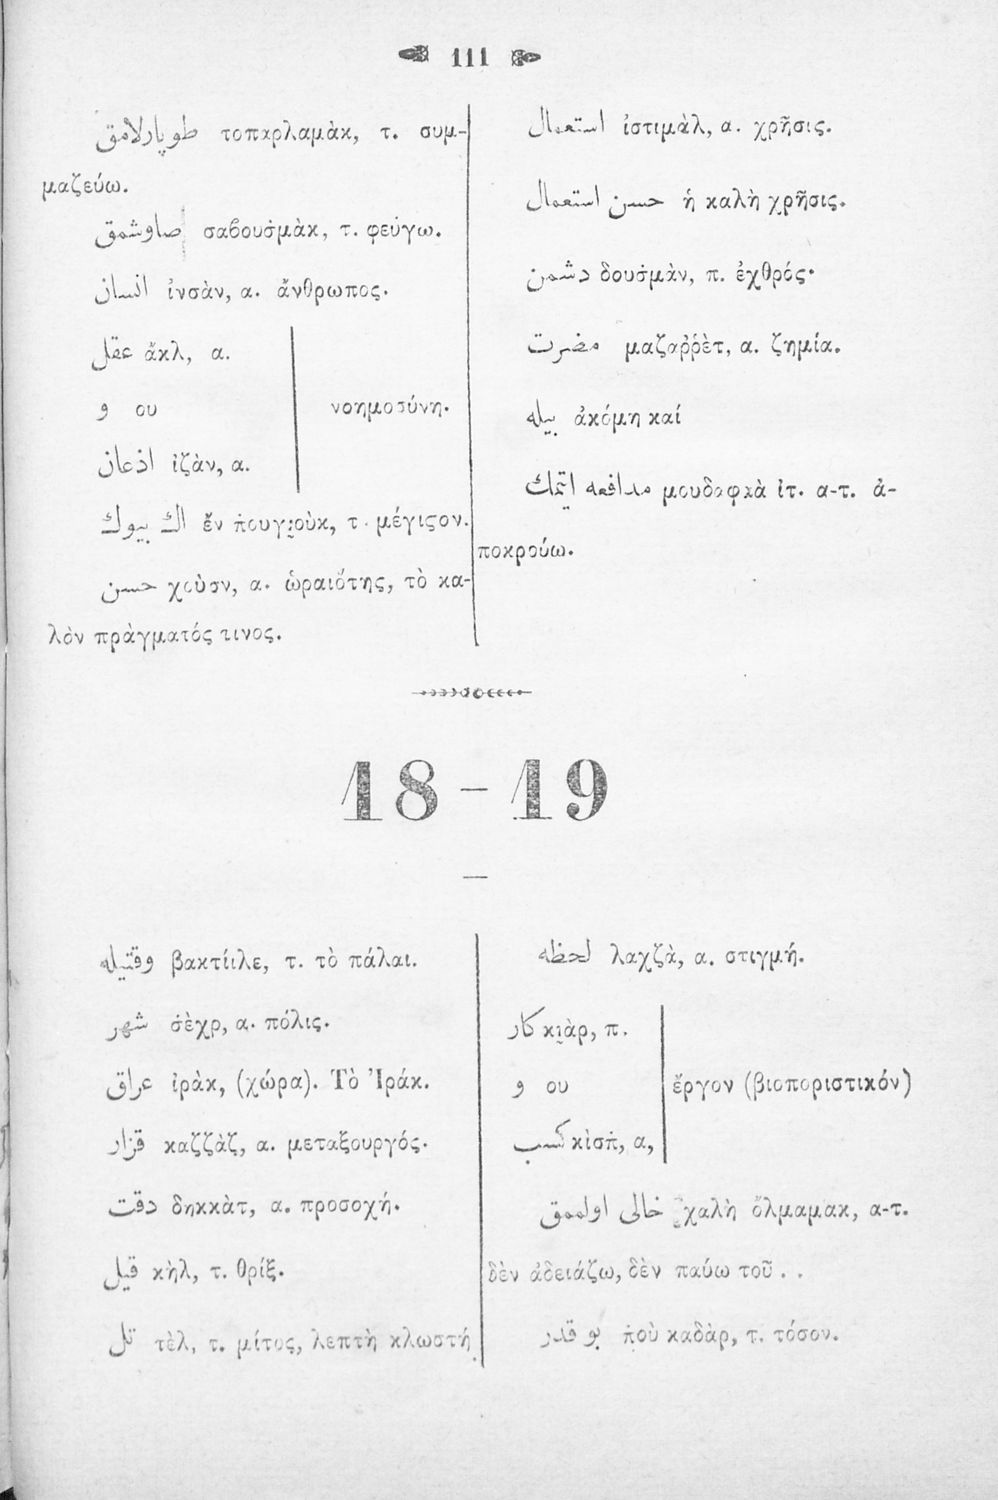 111
طوپارلامق τοπαρλαμὰκ, τ. συμ-
μαζεύω.
صاوشمق σαβουσ̇μὰκ, τ. φεύγω.
انسان ἰνσὰν, α. ἄνθρωπος.
عقل ἄκλ, α.
و ου νοημοσύνη.
اذعان ἰζὰν, α.
اك بيوك ἔν π̇ουγι̮οὺκ, τ. μέγιϛον.
حسن χοὺσν, α. ὡραιότης, τὸ κα-
λὸν πρὰγματός τινος.
استعمال ἰστιμὰλ, α. χρῆσις.
حسن استعمال ἡ καλὴ χρῆσις.
دشمن δουσ̇μὰν, π. ἐχθρός·
مضرت μαζαῤῥὲτ, α. ζημία.
بيله ἀκόμη καί
مدافعه ايتمك μουδαφαὰ ἰτ. α-τ. ἀ-
ποκρούω.
18 - 19
وقتيله βακτίιλε, τ. τὸ πάλαι.
شهر σ̇ὲχρ, α. πόλις.
عراق ἰρὰκ, (χώρα). Τὸ Ἰράκ.
قزاز καζζὰζ, α. μεταξουργός.
دقت δηκκὰτ, α. προσοχή.
قيل κὴλ, τ. θρίξ.
تل τὲλ, τ. μίτος, λεπτὴ κλωστή
لحظه λαχζὰ, α. στιγμή.
كار κι̮ὰρ, π.
و ου ἔργον (βιοποριστικόν)
كسب κὶσπ̇, α,
خالى اولممق χαλὴ ὄλμαμακ, α-τ.
δὲν ἀδειάζω, δὲν παύω τοῦ . .
بو قدر π̇οὺ καδὰρ, τ. τόσον.